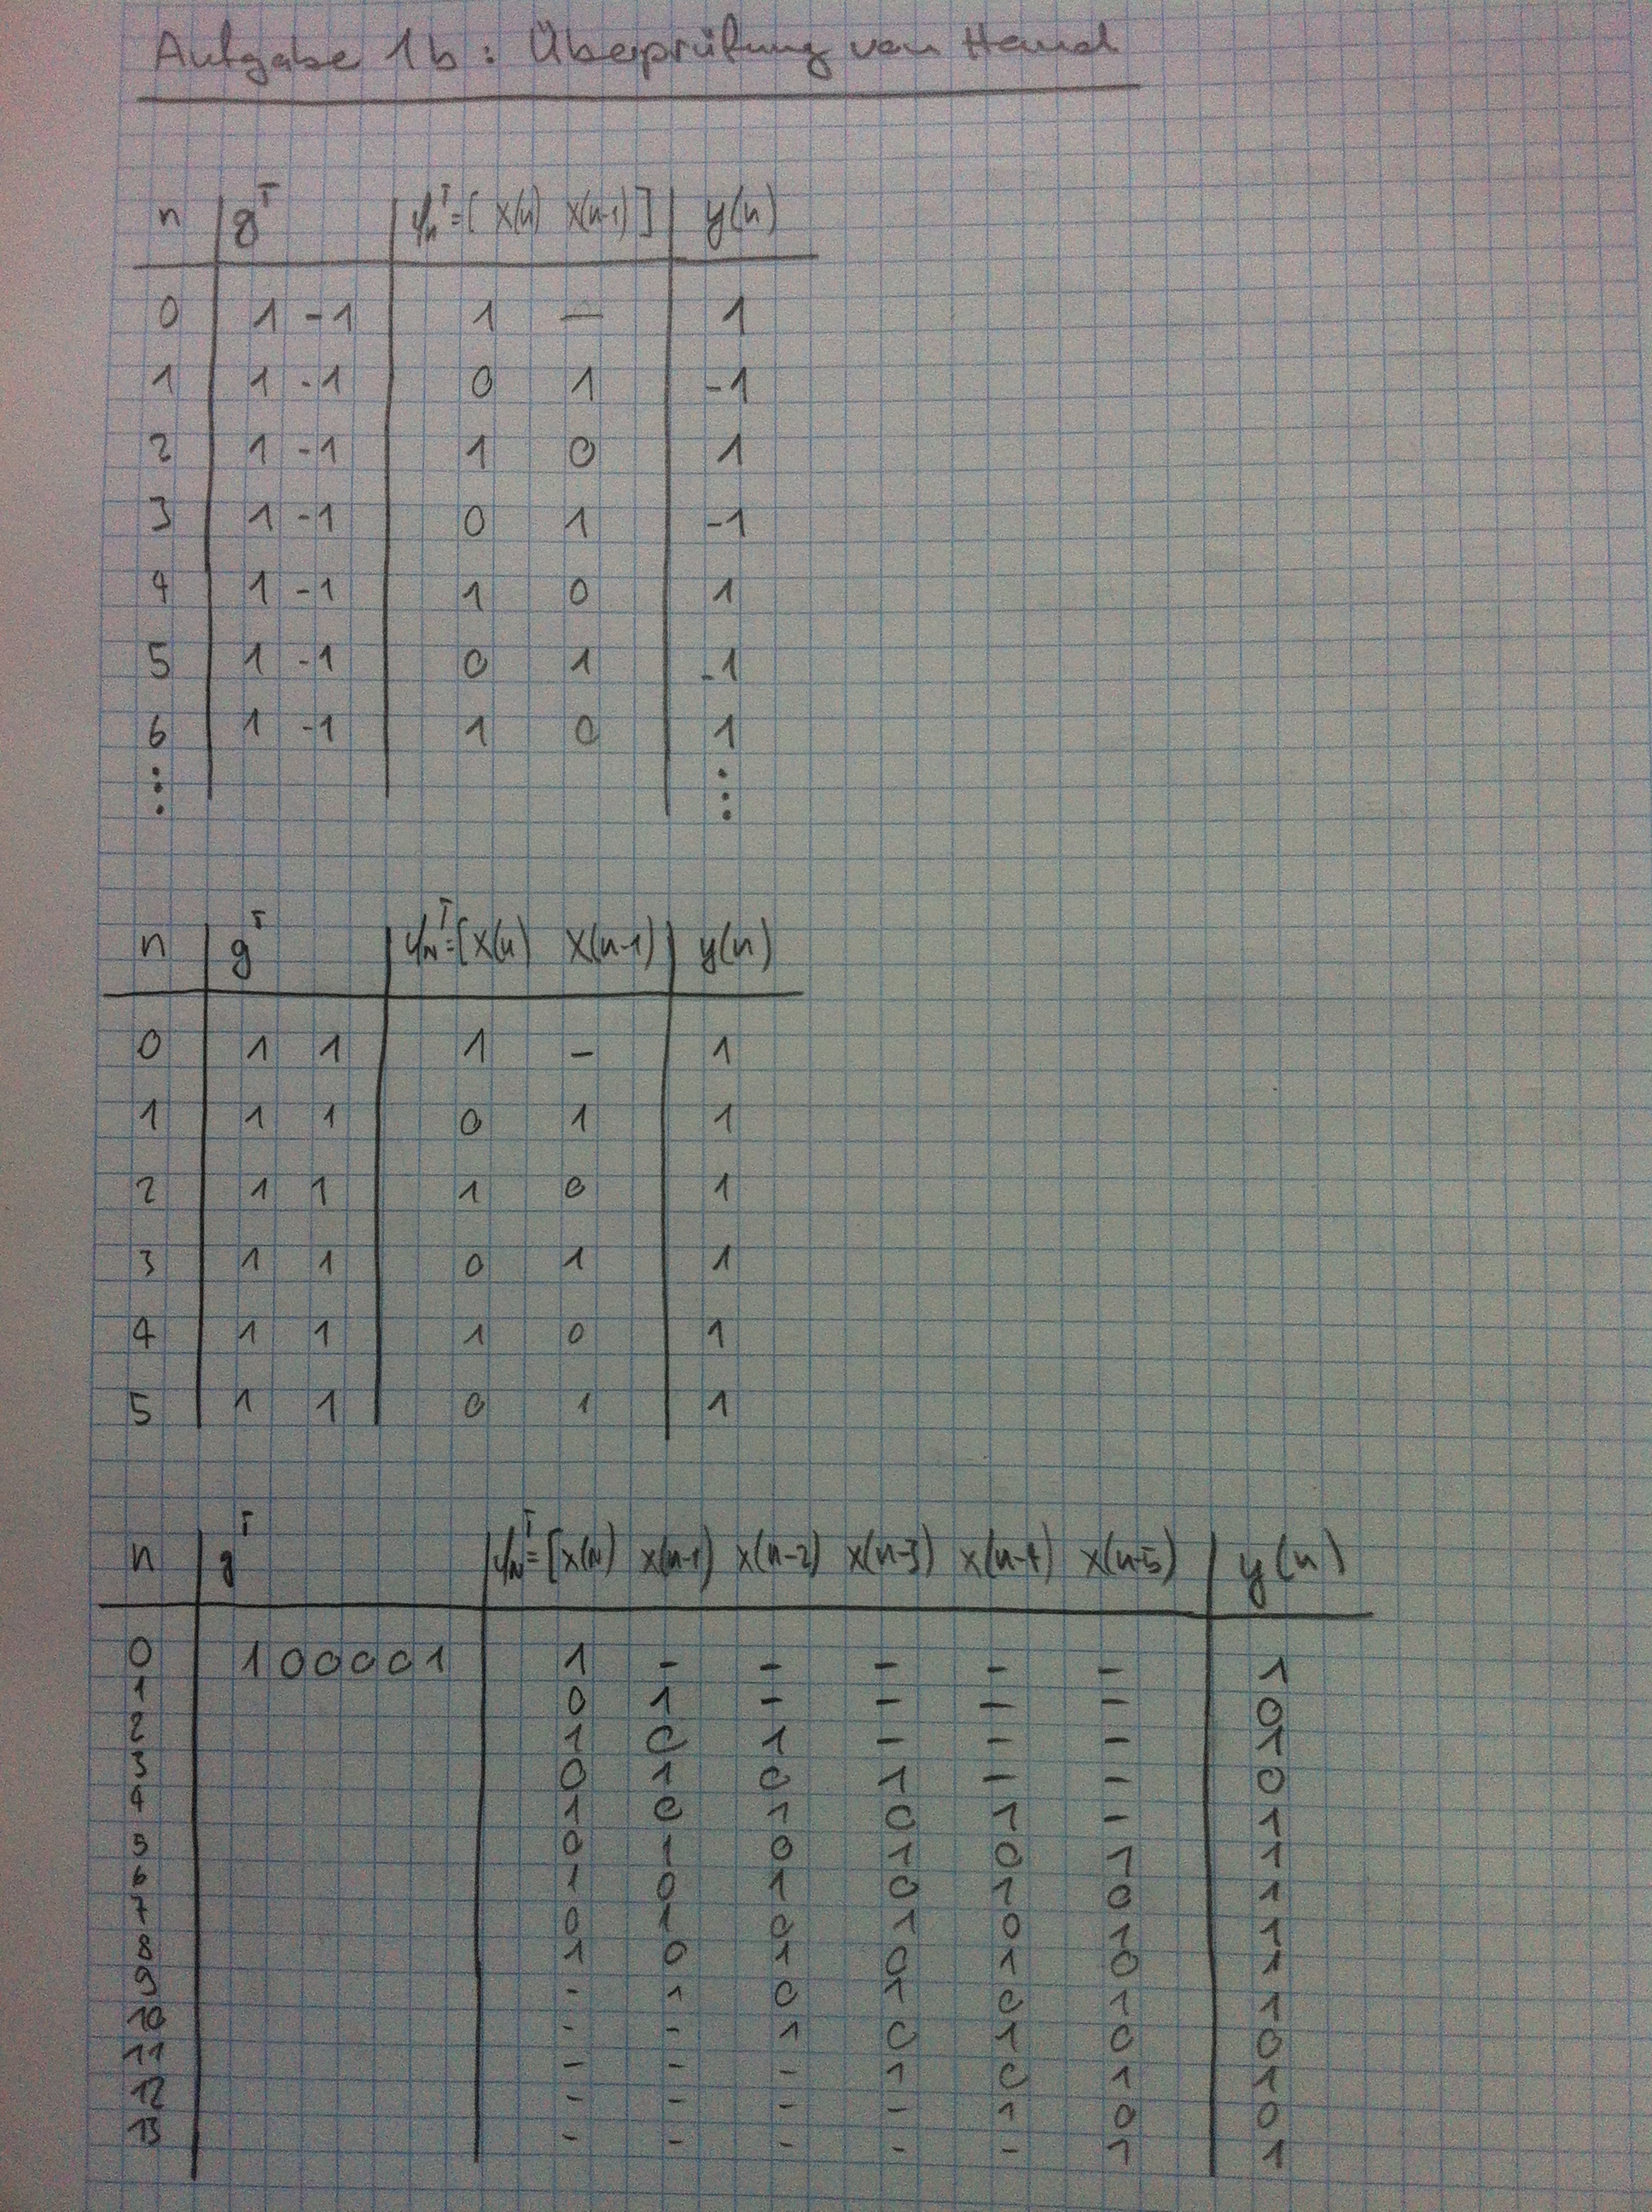 Aufgabe 1b: Überprüfung von Hand
n g^T ψ_n^T=[ x(n) x(n-1) ] y(n)
0 1 -1 1 — 1
1 1 -1 0 1 -1
2 1 -1 1 0 1
3 1 -1 0 1 -1
4 1 -1 1 0 1
5 1 -1 0 1 -1
6 1 -1 1 0 1
⋮ ⋮
n g^T ψ_N^T=[x(n) x(n-1) y(n)
0 1 1 1 - 1
1 1 1 0 1 1
2 1 1 1 0 1
3 1 1 0 1 1
4 1 1 1 0 1
5 1 1 0 1 1
n g^T ψ_N^T=[x(N) x(n-1) x(n-2) x(n-3) x(n-4) x(n-5) y(n)
0 1 0 0 0 0 1 1 - - - - - 1
1 0 1 - - - - 0
2 1 0 1 - - - 1
3 0 1 0 1 - - 0
4 1 0 1 0 1 - 1
5 0 1 0 1 0 1 1
6 1 0 1 0 1 0 1
7 0 1 0 1 0 1 1
8 1 0 1 0 1 0 1
9 - 1 0 1 0 1 1
10 - - 1 0 1 0 0
11 - - - 1 0 1 1
12 - - - - 1 0 0
13 - - - - - 1 1